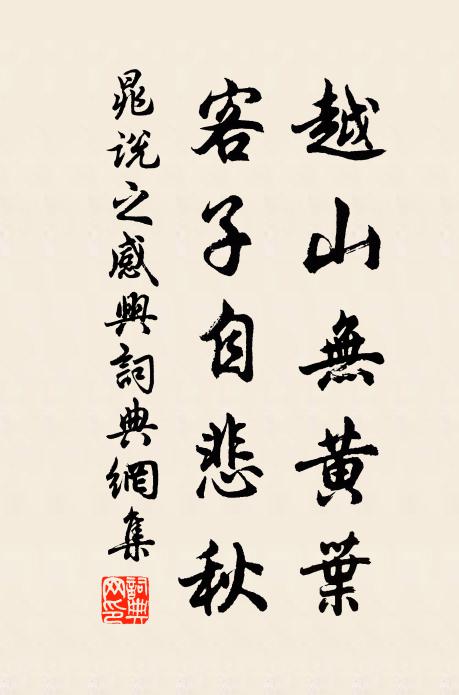 越山無黃葉
客子自悲秋
晁說之感興詞典網集
詞典網印